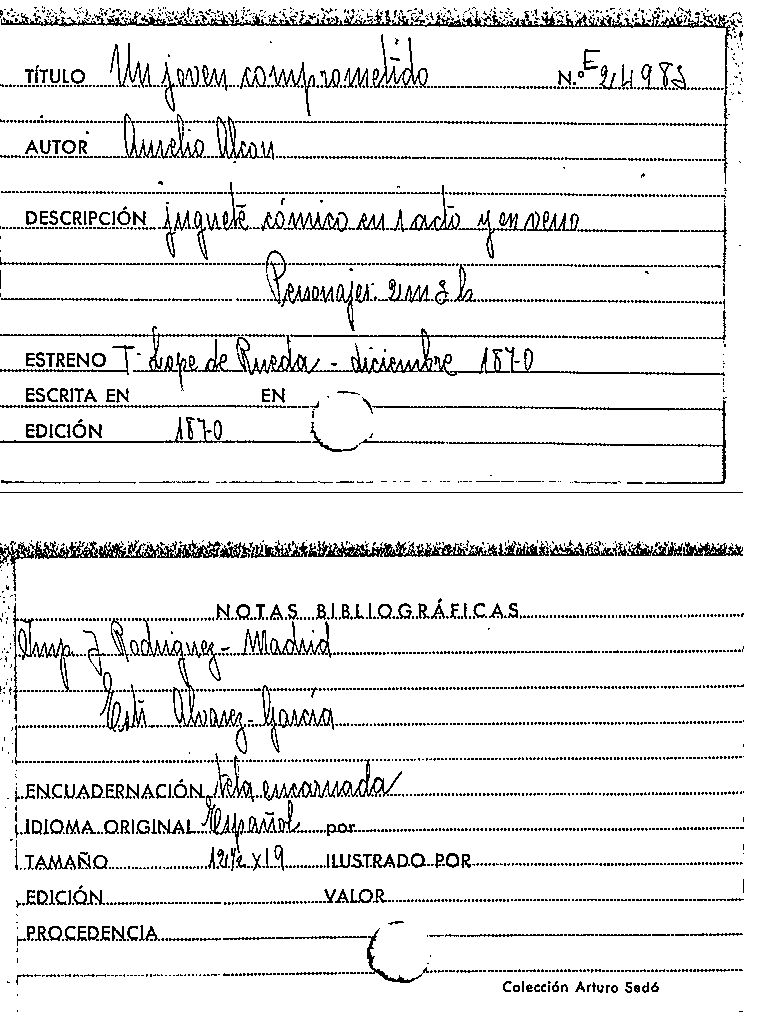 TÍTULO Un joven comprometido N.º E 24983
AUTOR Aurelio Alcon
DESCRIPCIÓN juguete cómico en 1 acto y en verso
Personajes. 2 m 3 h
ESTRENO T. Lope de Rueda - diciembre 1870
ESCRITA EN EN
EDICIÓN 1870
NOTAS BIBLIOGRÁFICAS
Imp J Rodriguez - Madrid
Alvarez - García
ENCUADERNACIÓN tela encarnada
IDIOMA ORIGINAL Español por
TAMAÑO 12½ x 19 ILUSTRADO POR
EDICIÓN VALOR
PROCEDENCIA
Colección Arturo Sedó